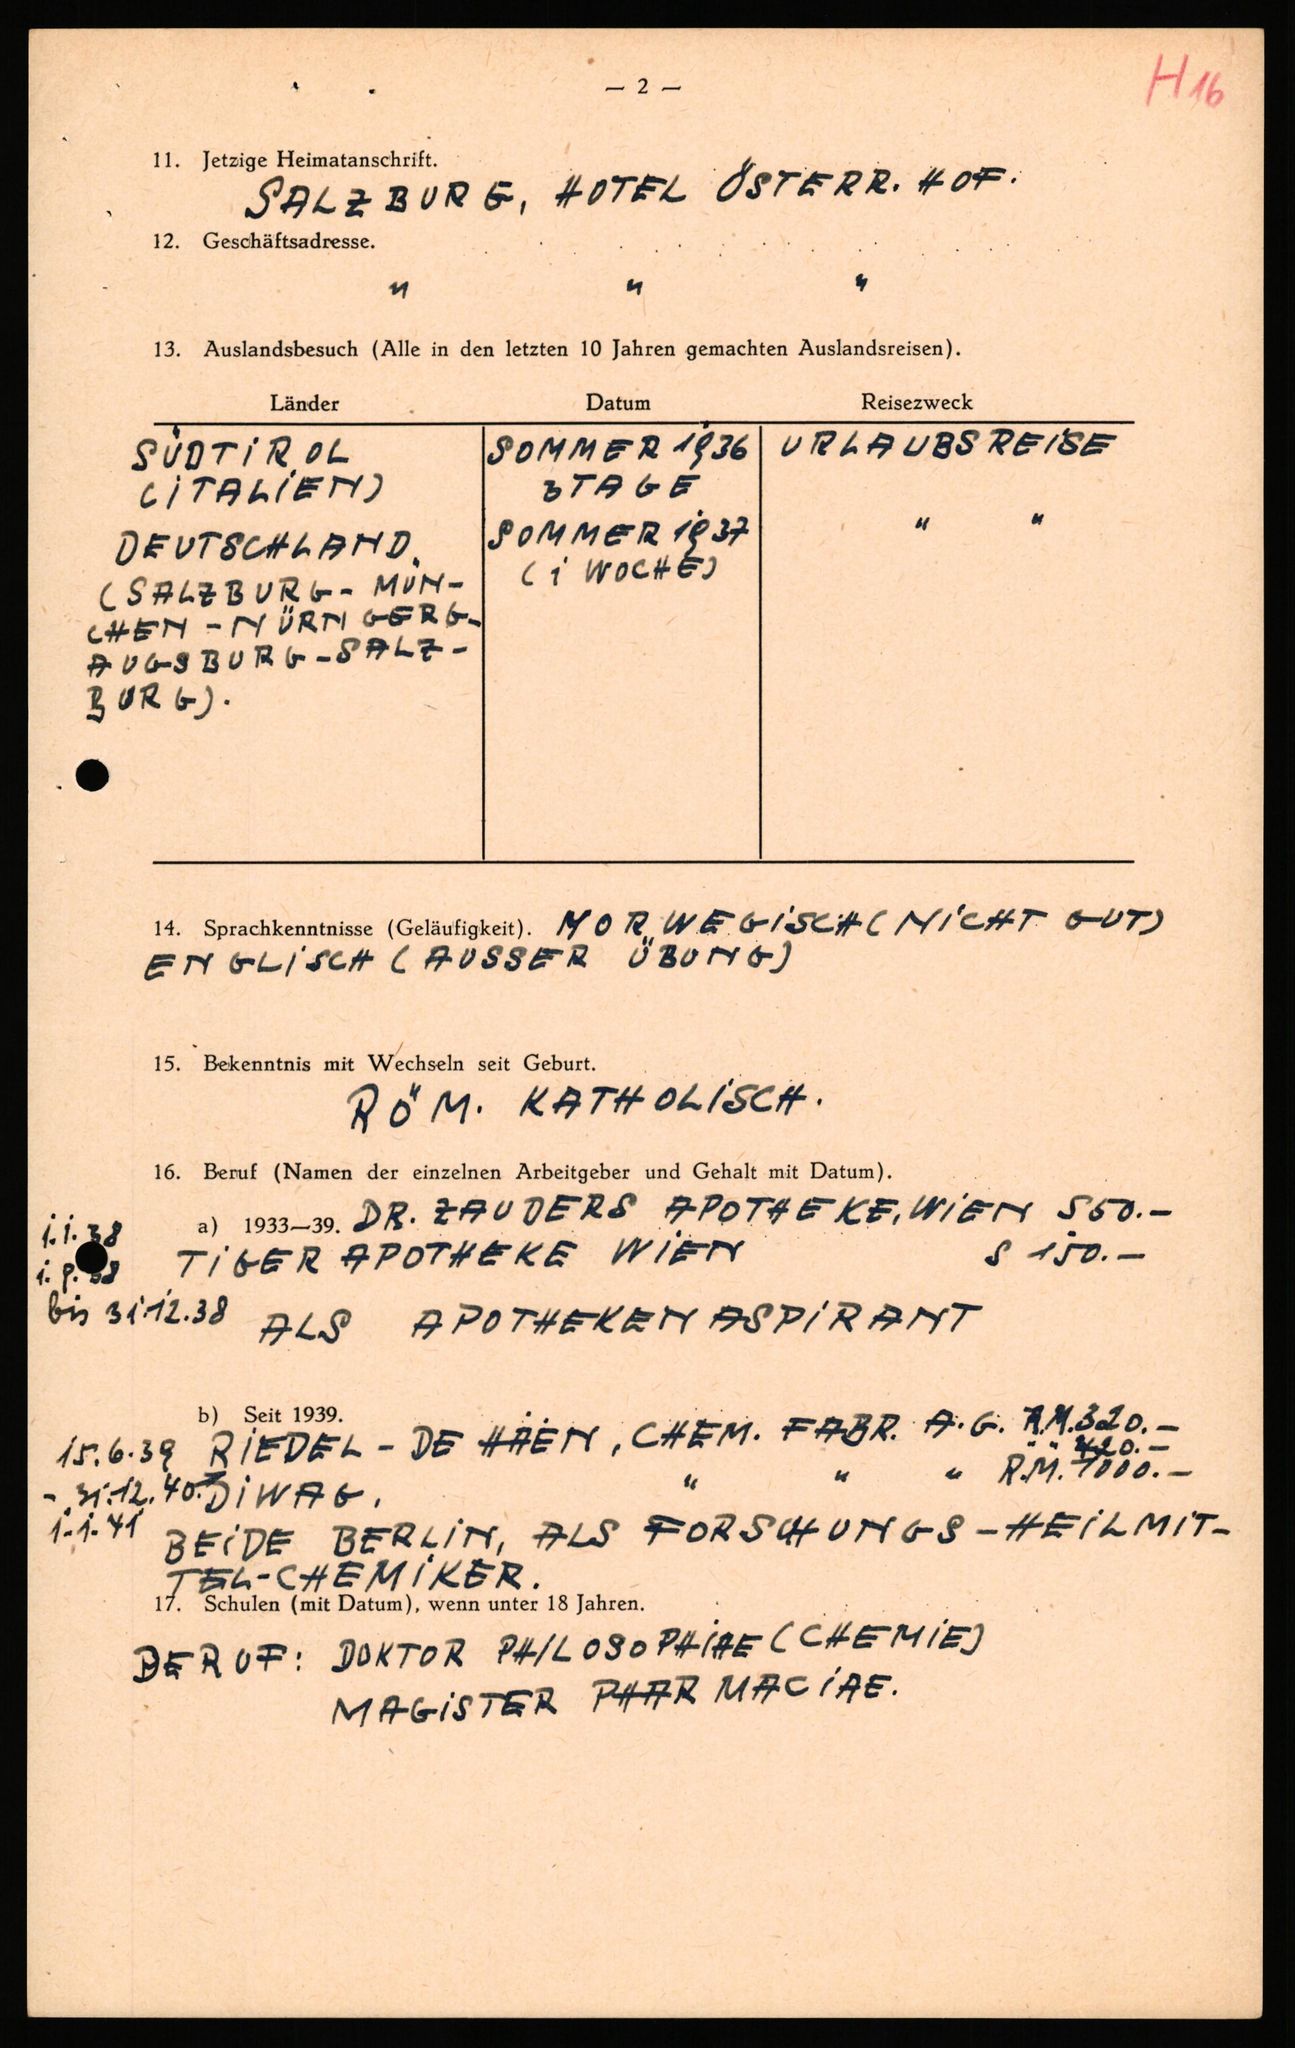 — 2 —
H 16
11. Jetzige Heimatanschrift.
SALZBURG, HOTEL ÖSTERR. HOF.
12. Geschäftsadresse.
" " "
13. Auslandsbesuch (Alle in den letzten 10 Jahren gemachten Auslandsreisen).
Länder Datum Reisezweck
SÜDTIROL SOMMER 1936 URLAUBSREISE
(ITALIEN) 3 TAGE
DEUTSCHLAND. SOMMER 1937 " "
(SALZBURG - MÜN- (1 WOCHE)
CHEN - NÜRNGERG-
AUGSBURG - SALZ-
BURG).
14. Sprachkenntnisse (Geläufigkeit). NORWEGISCH (NICHT GUT)
ENGLISCH (AUSSER ÜBUNG)
15. Bekenntnis mit Wechseln seit Geburt.
RÖM. KATHOLISCH.
16. Beruf (Namen der einzelnen Arbeitgeber und Gehalt mit Datum).
1.1.38 a) 1933—39. DR. ZAUDERS APOTHEKE, WIEN S 50.-
TIGER APOTHEKE WIEN S 150.-
bis 31.12.38 ALS APOTHEKENASPIRANT
b) Seit 1939.
15.6.39 RIEDEL - DE HÄEN, CHEM. FABR. A.G. R.M. 320.-
420.-
- 31.12.40. DIWAG, " " " R.M. 1000.-
1.1.41
BEIDE BERLIN, ALS FORSCHUNGS - HEILMIT-
TEL-CHEMIKER.
17. Schulen (mit Datum), wenn unter 18 Jahren.
BERUF: DOKTOR PHILOSOPHIAE (CHEMIE)
MAGISTER PHARMACIAE.